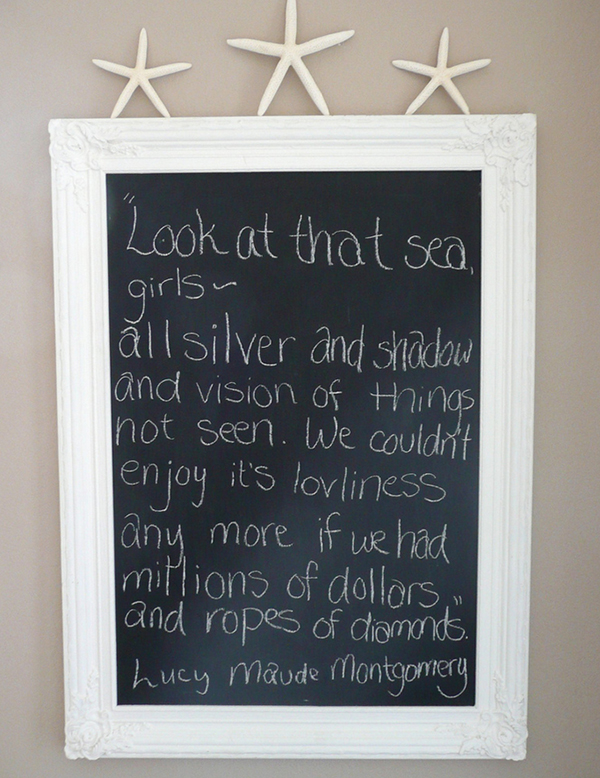 "Look at that sea,
girls~
all silver and shadow
and vision of things
not seen. We couldn't
enjoy it's lovliness
any more if we had
millions of dollars
and ropes of diamonds."
Lucy Maude Montgomery